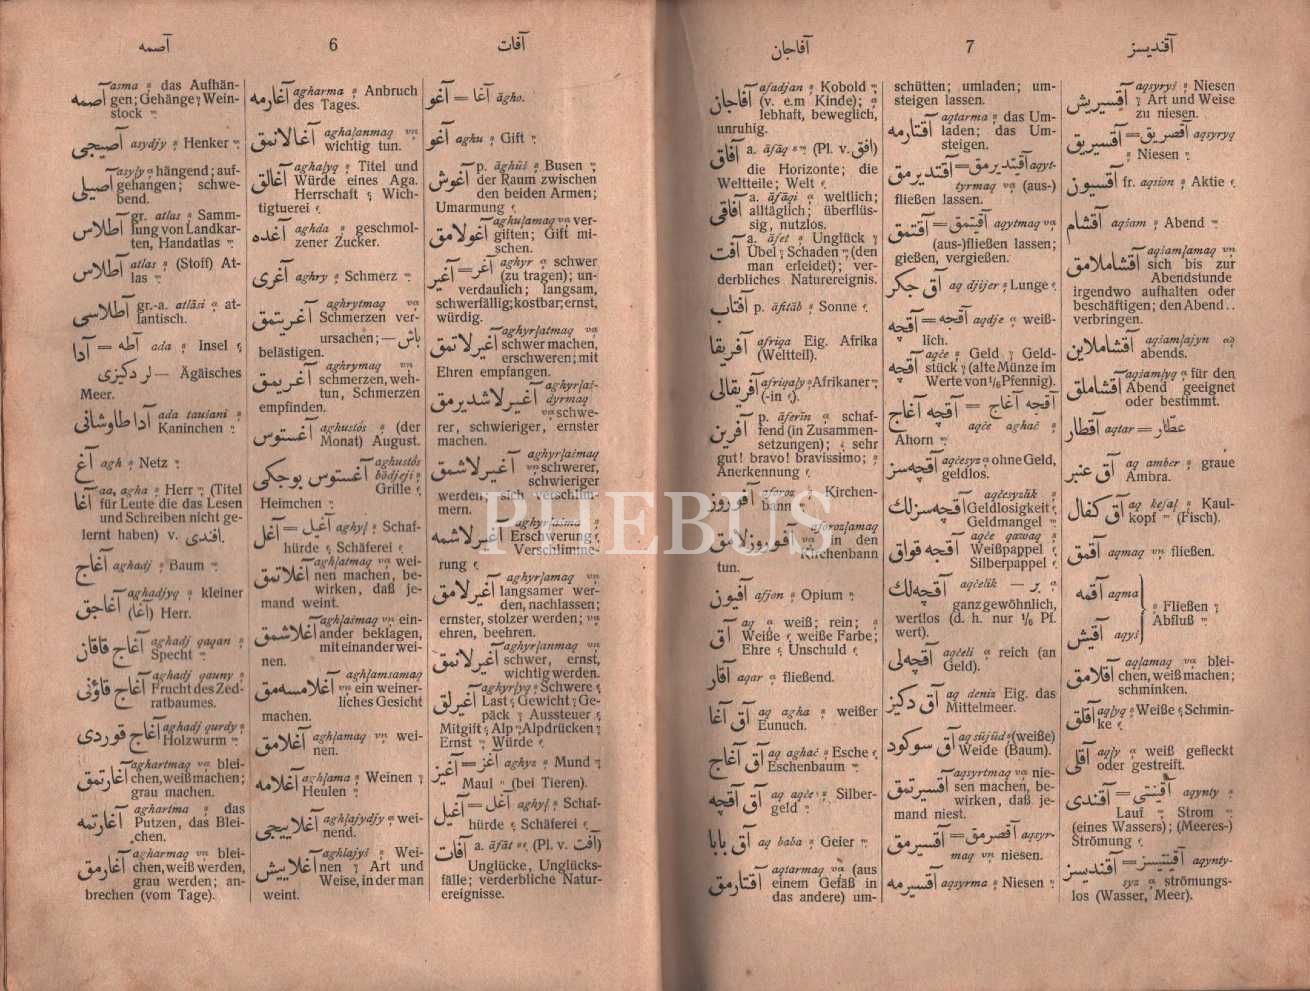 آصمه 6 آفات
آصمه asma das Aufhän-
gen; Gehänge; Wein-
stock
آصیجی asydjy Henker
آصیلی asyly hängend; auf-
gehangen; schwe-
bend.
آطلاس gr. atlas Samm-
lung von Landkar-
ten, Handatlas
آطلاس atlas (Stoff) At-
las
آطلاسی gr.-a. atlāsi at-
lantisch.
آدا = آطه ada Insel
لر دکیزی — Ägäisches
Meer.
آدا طاوشانی ada taušani
Kaninchen
آغ agh Netz
آغا aa, agha Herr (Titel
für Leute die das Lesen
und Schreiben nicht ge-
lernt haben) v. افندی.
آغاج aghadj Baum
آغاجق aghadjyq kleiner
(آغا) Herr.
آغاج قاقان aghadj qaqan
Specht
aghadj qauny
Frucht des Zed-
ratbaumes.
آغاج قوردی aghadj qurdy
Holzwurm
آغارتمق aghartmaq blei-
chen, weiß machen;
grau machen.
آغارتمه aghartma das
Putzen, das Blei-
chen.
آغارمق agharmaq blei-
chen, weiß werden,
grau werden; an-
brechen (vom Tage).
آغارمه agharma Anbruch
des Tages.
آغالانمق agha|anmaq
wichtig tun.
آغالق agha|yq Titel und
Würde eines Aga.
Herrschaft; Wich-
tigtuerei
آغده aghda geschmol-
zener Zucker.
آغری aghry Schmerz
آغریتمق aghrytmaq
Schmerzen ver-
ursachen; — باش
belästigen.
آغریمق aghrymaq
schmerzen, weh-
tun, Schmerzen
empfinden.
آغستوس aghustós (der
Monat) August.
آغستوس بوجکی aghustós
bödjeji
Grille
Heimchen
آغل = آغیل aghyl Schaf-
hürde Schäferei
آغلاتمق agh|atmaq wei-
nen machen, be-
wirken, daß je-
mand weint.
آغلاشمق agh|ašmaq ein-
ander beklagen,
miteinander wei-
nen.
آغلامسه‌مق agh|amsamaq
ein weiner-
liches Gesicht
machen.
آغلامق agh|amaq wei-
nen.
آغلامه agh|ama Weinen
Heulen
آغلاییجی agh|ajydjy wei-
nend.
آغلاییش agh|ajyš Wei-
nen Art und
Weise, in der man
weint.
آغو = آغا āgho.
آغو aghu Gift
آغوش p. āghūš Busen
der Raum zwischen
den beiden Armen;
Umarmung
آغولامق aghu|amaq ver-
giften; Gift mi-
schen.
آغیر = آغر aghyr schwer
(zu tragen); un-
verdaulich; langsam,
schwerfällig; kostbar; ernst,
würdig.
آغیرلاتمق aghyr|atmaq
schwer machen,
erschweren; mit
Ehren empfangen.
آغیرلاشدیرمق aghyr|aš-
dyrmaq
schwe-
rer, schwieriger, ernster
machen.
آغیرلاشمق aghyr|ašmaq
schwerer,
schwieriger
werden, sich verschlim-
mern.
آغیرلاشمه aghyr|ašma
Erschwerung
Verschlimme-
rung
آغیرلامق aghyr|amaq
langsamer wer-
den, nachlassen;
ernster, stolzer werden;
ehren, beehren.
آغیرلانمق aghyr|anmaq
schwer, ernst,
wichtig werden.
آغیرلق aghyr|yq Schwere
Last Gewicht Ge-
päck Aussteuer
Mitgift Alp Alpdrücken
Ernst Würde
آغیز = آغز aghyz Mund
Maul (bei Tieren).
آغیل = آغل aghyl Schaf-
hürde Schäferei
آفات a. āfāt (Pl. v. آفت)
Unglücke, Unglücks-
fälle; verderbliche Natur-
ereignisse.
آفاجان 7 آقندیسز
آفاجان afadjan Kobold
(v. e.m Kinde);
lebhaft, beweglich,
unruhig.
آفاق a. āfāq (Pl. v. افق)
die Horizonte; die
Weltteile; Welt
آفاقی a. āfāqi weltlich;
alltäglich; überflüs-
sig, nutzlos.
آفت a. āfet Unglück
Übel Schaden (den
man erleidet); ver-
derbliches Naturereignis.
آفتاب p. āftāb Sonne
آفریقا afriqa Eig. Afrika
(Weltteil).
آفریقالی afriqaly Afrikaner
(-in).
آفرین p. āferīn schaf-
fend (in Zusammen-
setzungen); sehr
gut! bravo! bravissimo;
Anerkennung
آفوروز aforoz Kirchen-
bann
آفوروزلامق aforoz|amaq
in den
Kirchenbann
tun.
آفیون afjon Opium
آق aq weiß; rein;
Weiße weiße Farbe;
Ehre Unschuld
آقار aqar fließend.
آق آغا aq agha weißer
Eunuch.
آق آغاج aq aghač Esche
Eschenbaum
آق آقچه aq aqče Silber-
geld
آق بابا aq baba Geier
آقتارمق aqtarmaq (aus
einem Gefäß in
das andere) um-
schütten; umladen; um-
steigen lassen.
آقتارمه aqtarma das Um-
laden; das Um-
steigen.
آقتدیرمق = آقیتدیرمق aqyt-
tyrmaq (aus-)
fließen lassen.
آقتمق = آقیتمق aqytmaq
(aus-)fließen lassen;
gießen, vergießen.
آق جکر aq djijer Lunge
آقجه = آقچه aqdje weiß-
lich.
آقچه aqče Geld Geld-
stück (alte Münze im
Werte von ⅙ Pfennig).
آقچه آغاج = آقجه آغاج
aqče aghač
Ahorn
آقچه‌سز aqčesyz ohne Geld,
geldlos.
آقچه‌سزلك aqčesyzlik
Geldlosigkeit
Geldmangel
آقچه قواق aqče qawaq
Weißpappel
Silberpappel
آقچه‌لك aqčelik — بر
ganz gewöhnlich,
wertlos (d. h. nur ⅙ Pf.
wert).
آقچه‌لی aqčeli reich (an
Geld).
آق دکیز aq deniz Eig. das
Mittelmeer.
آق سوکود aq süjüd (weiße)
Weide (Baum).
آقسیرتمق aqsyrtmaq nie-
sen machen, be-
wirken, daß je-
mand niest.
آقسیرمق = آقصرمق aqsyr-
maq niesen.
آقسیرمه aqsyrma Niesen
آقسیریش aqsyryš Niesen
Art und Weise
zu niesen.
آقسیریق = آقصریق aqsyryq
Niesen
آقسیون fr. aqsion Aktie
آقشام aqšam Abend
آقشاملامق aqšam|amaq
sich bis zur
Abendstunde
irgendwo aufhalten oder
beschäftigen; den Abend..
verbringen.
آقشاملاین aqšam|ajyn
abends.
آقشاملق aqšam|yq für den
Abend geeignet
oder bestimmt.
آقطار aqtar = عطّار
آق عنبر aq amber graue
Ambra.
آق کفال aq kefal Kaul-
kopf (Fisch).
آقمق aqmaq fließen.
آقمه aqma
Fließen
Abfluß
آقیش aqyš
آقلامق aq|amaq blei-
chen, weiß machen;
schminken.
آقلق aq|yq Weiße Schmin-
ke
آقلی aq|y weiß gefleckt
oder gestreift.
آقندی = آقینتی aqynty
Lauf Strom
(eines Wassers); (Meeres-)
Strömung
آقندیسز = آقینتیسز aqynty-
syz strömungs-
los (Wasser, Meer).
PHEBUS